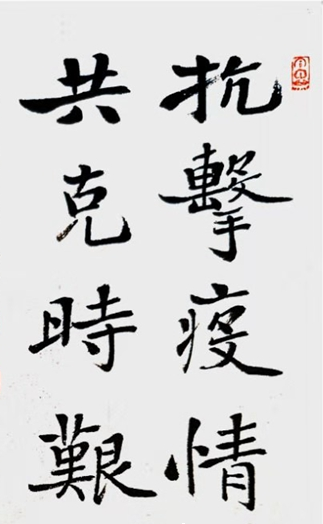 抗擊疫情
共克時艱